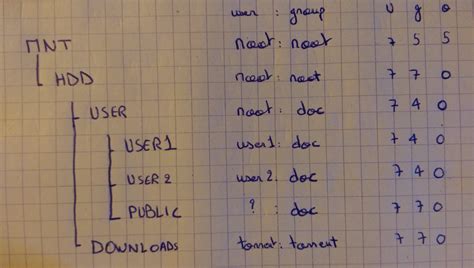 user : group U g o
MNT root : root 7 5 5
HDD root : root 7 7 0
USER root : doc 7 4 0
USER1 user1 : doc 7 4 0
USER 2 user 2 : doc 7 4 0
PUBLIC ? : doc 7 7 0
DOWNLOADS torrent : torrent 7 7 0